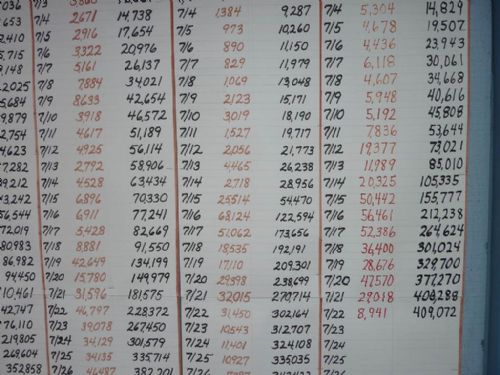 036 7/3 7/3 7/3
653 7/4 2671 14,738 7/4 1384 9,287 7/4 5,304 14,829
2,410 7/5 2916 17,654 7/5 973 10,260 7/5 4,678 19,507
5,715 7/6 3322 20,976 7/6 890 11,150 7/6 4,436 23,943
9,148 7/7 5161 26,137 7/7 829 11,979 7/7 6,118 30,061
2,025 7/8 7884 34,021 7/8 1,069 13,048 7/8 4,607 34,668
5,684 7/9 8633 42,654 7/9 2123 15,171 7/9 5,948 40,616
9,879 7/10 3918 46,572 7/10 3,019 18,190 7/10 5,192 45,808
2,754 7/11 4617 51,189 7/11 1,527 19,717 7/11 7836 53,644
4,623 7/12 4925 56,114 7/12 2,056 21,773 7/12 19,377 73,021
7,282 7/13 2,792 58,906 7/13 4,465 26,238 7/13 11,989 85,010
39,212 7/14 4528 63,434 7/14 2718 28,956 7/14 20,325 105,335
43,242 7/15 6896 70,330 7/15 25514 54,470 7/15 50,442 155,777
56,544 7/16 6,911 77,241 7/16 68,124 122,594 7/16 56,461 212,238
72,019 7/17 5,428 82,669 7/17 51,062 173,656 7/17 52,386 264,624
80,983 7/18 8,881 91,550 7/18 18535 192,191 7/18 36,400 301,024
86,982 7/19 42,649 134,199 7/19 17,110 209,301 7/19 28,676 329,700
94450 7/20 15,780 149,979 7/20 29398 238,699 7/20 47,570 377,270
110,461 7/21 31,596 181,575 7/21 32,015 270,714 7/21
42,747 7/22 46,797 228,372 7/22 31,450 302,164 7/22 8,941 409,072
76,110 7/23 39,078 267,450 7/23 10,543 312,707 7/23
219,805 7/24 34,129 301,579 7/24 11,401 324,108 7/24
269,604 7/25 34,135 335,714 7/25 10,927 335,035 7/25
352858 7/26 46487 382,201 7/26 7/26